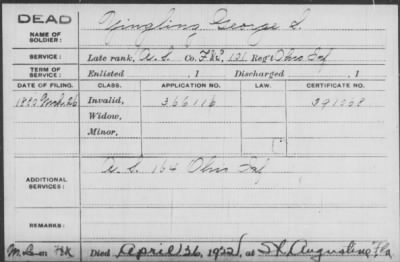 DEAD
NAME OF SOLDIER:
Yingling, George S.
SERVICE:
Late rank, Co. F&S, 131 Reg't Ohio Inf
TERM OF SERVICE:
Enlisted , 1 Discharged , 1
DATE OF FILING. CLASS. APPLICATION NO. LAW. CERTIFICATE NO.
1880 Mch 26 Invalid, 366116
Widow,
Minor,
ADDITIONAL SERVICES:
164 Ohio Inf
REMARKS:
Died April 26, 1922, at St. Augustine Fla